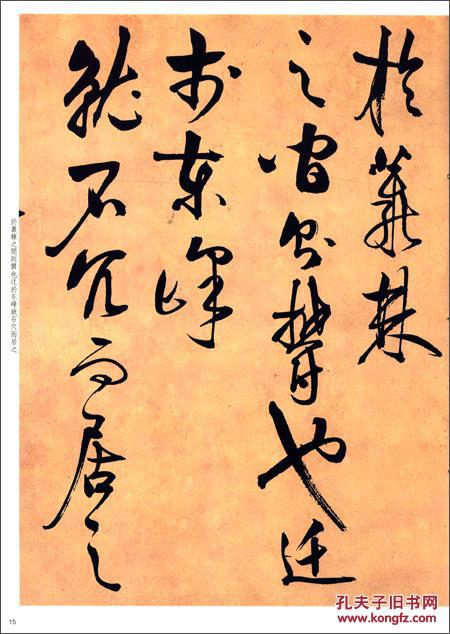 於叢棘
之間則瞽也迁
於东峰
就石穴而居之
於叢棘之間則瞽也迁於东峰就石穴而居之
15
孔夫子旧书网
www.kongfz.com